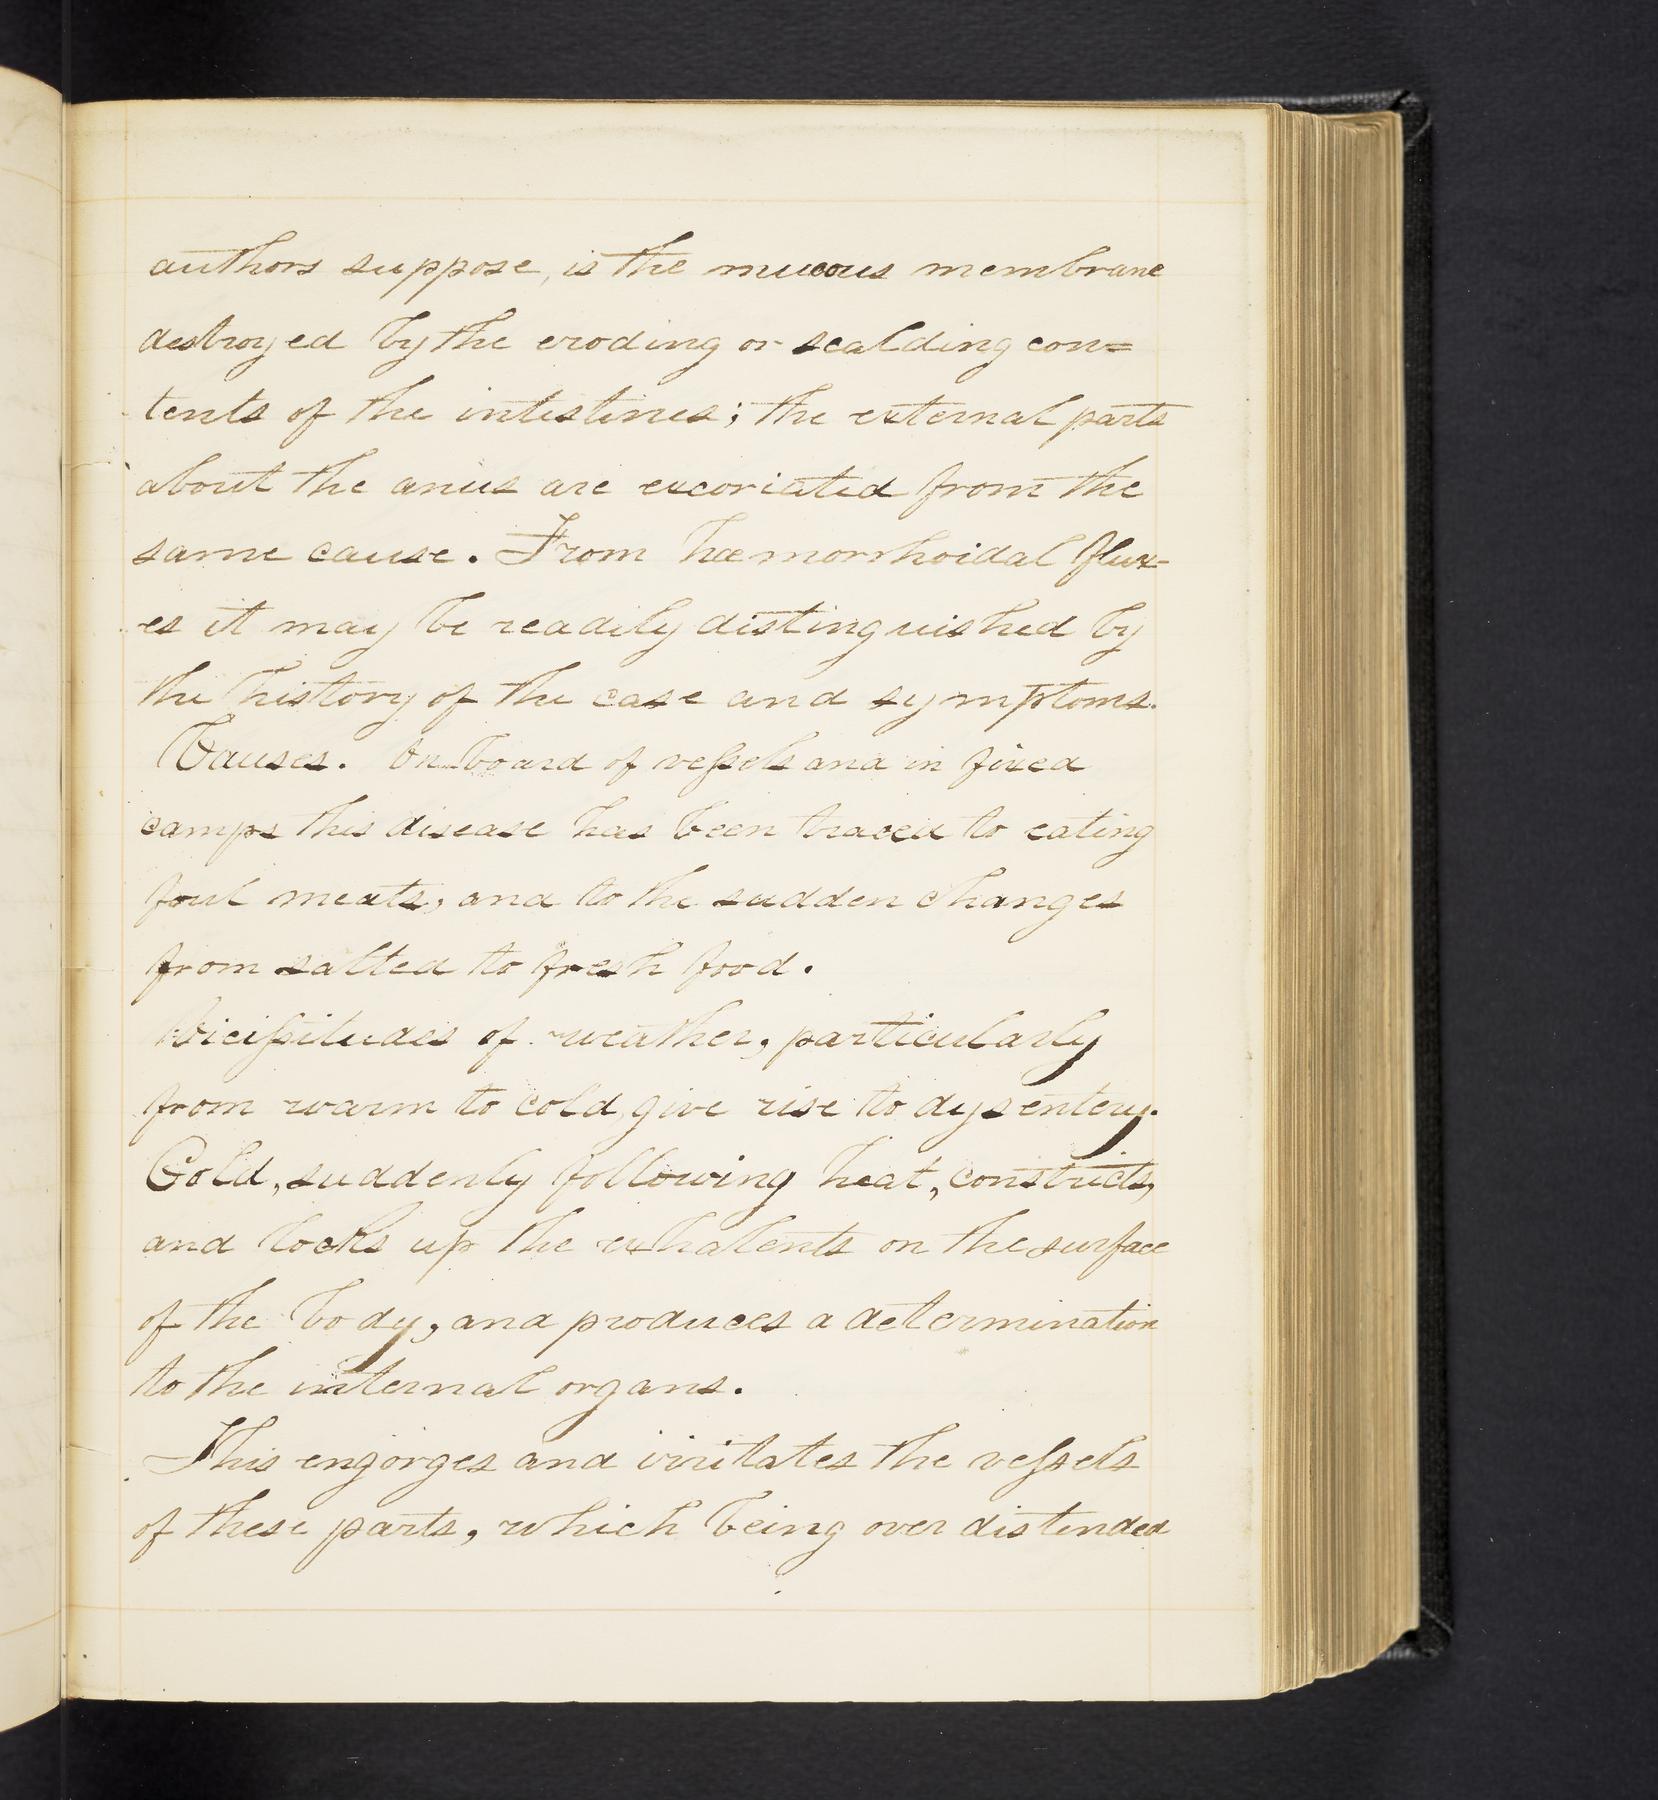 authors suppose, is the mucous membrane
destroyed by the eroding or scalding con=
tents of the intestines; the external parts
about the anus are excoriated from the
same cause. From hæmorrhoidal flux-
es it may be readily distinguished by
the history of the case and symptoms.
Causes. On board of vessels and in fixed
camps this disease has been traced to eating
foul meats, and to the sudden changes
from salted to fresh food.
Vicissitudes of weather, particularly
from warm to cold, give rise to dysentery.
Cold, suddenly following heat, constricts,
and locks up the exhalents on the surface
of the body, and produces a determination
to the internal organs.
This engorges and irritates the vessels
of these parts, which being over distended